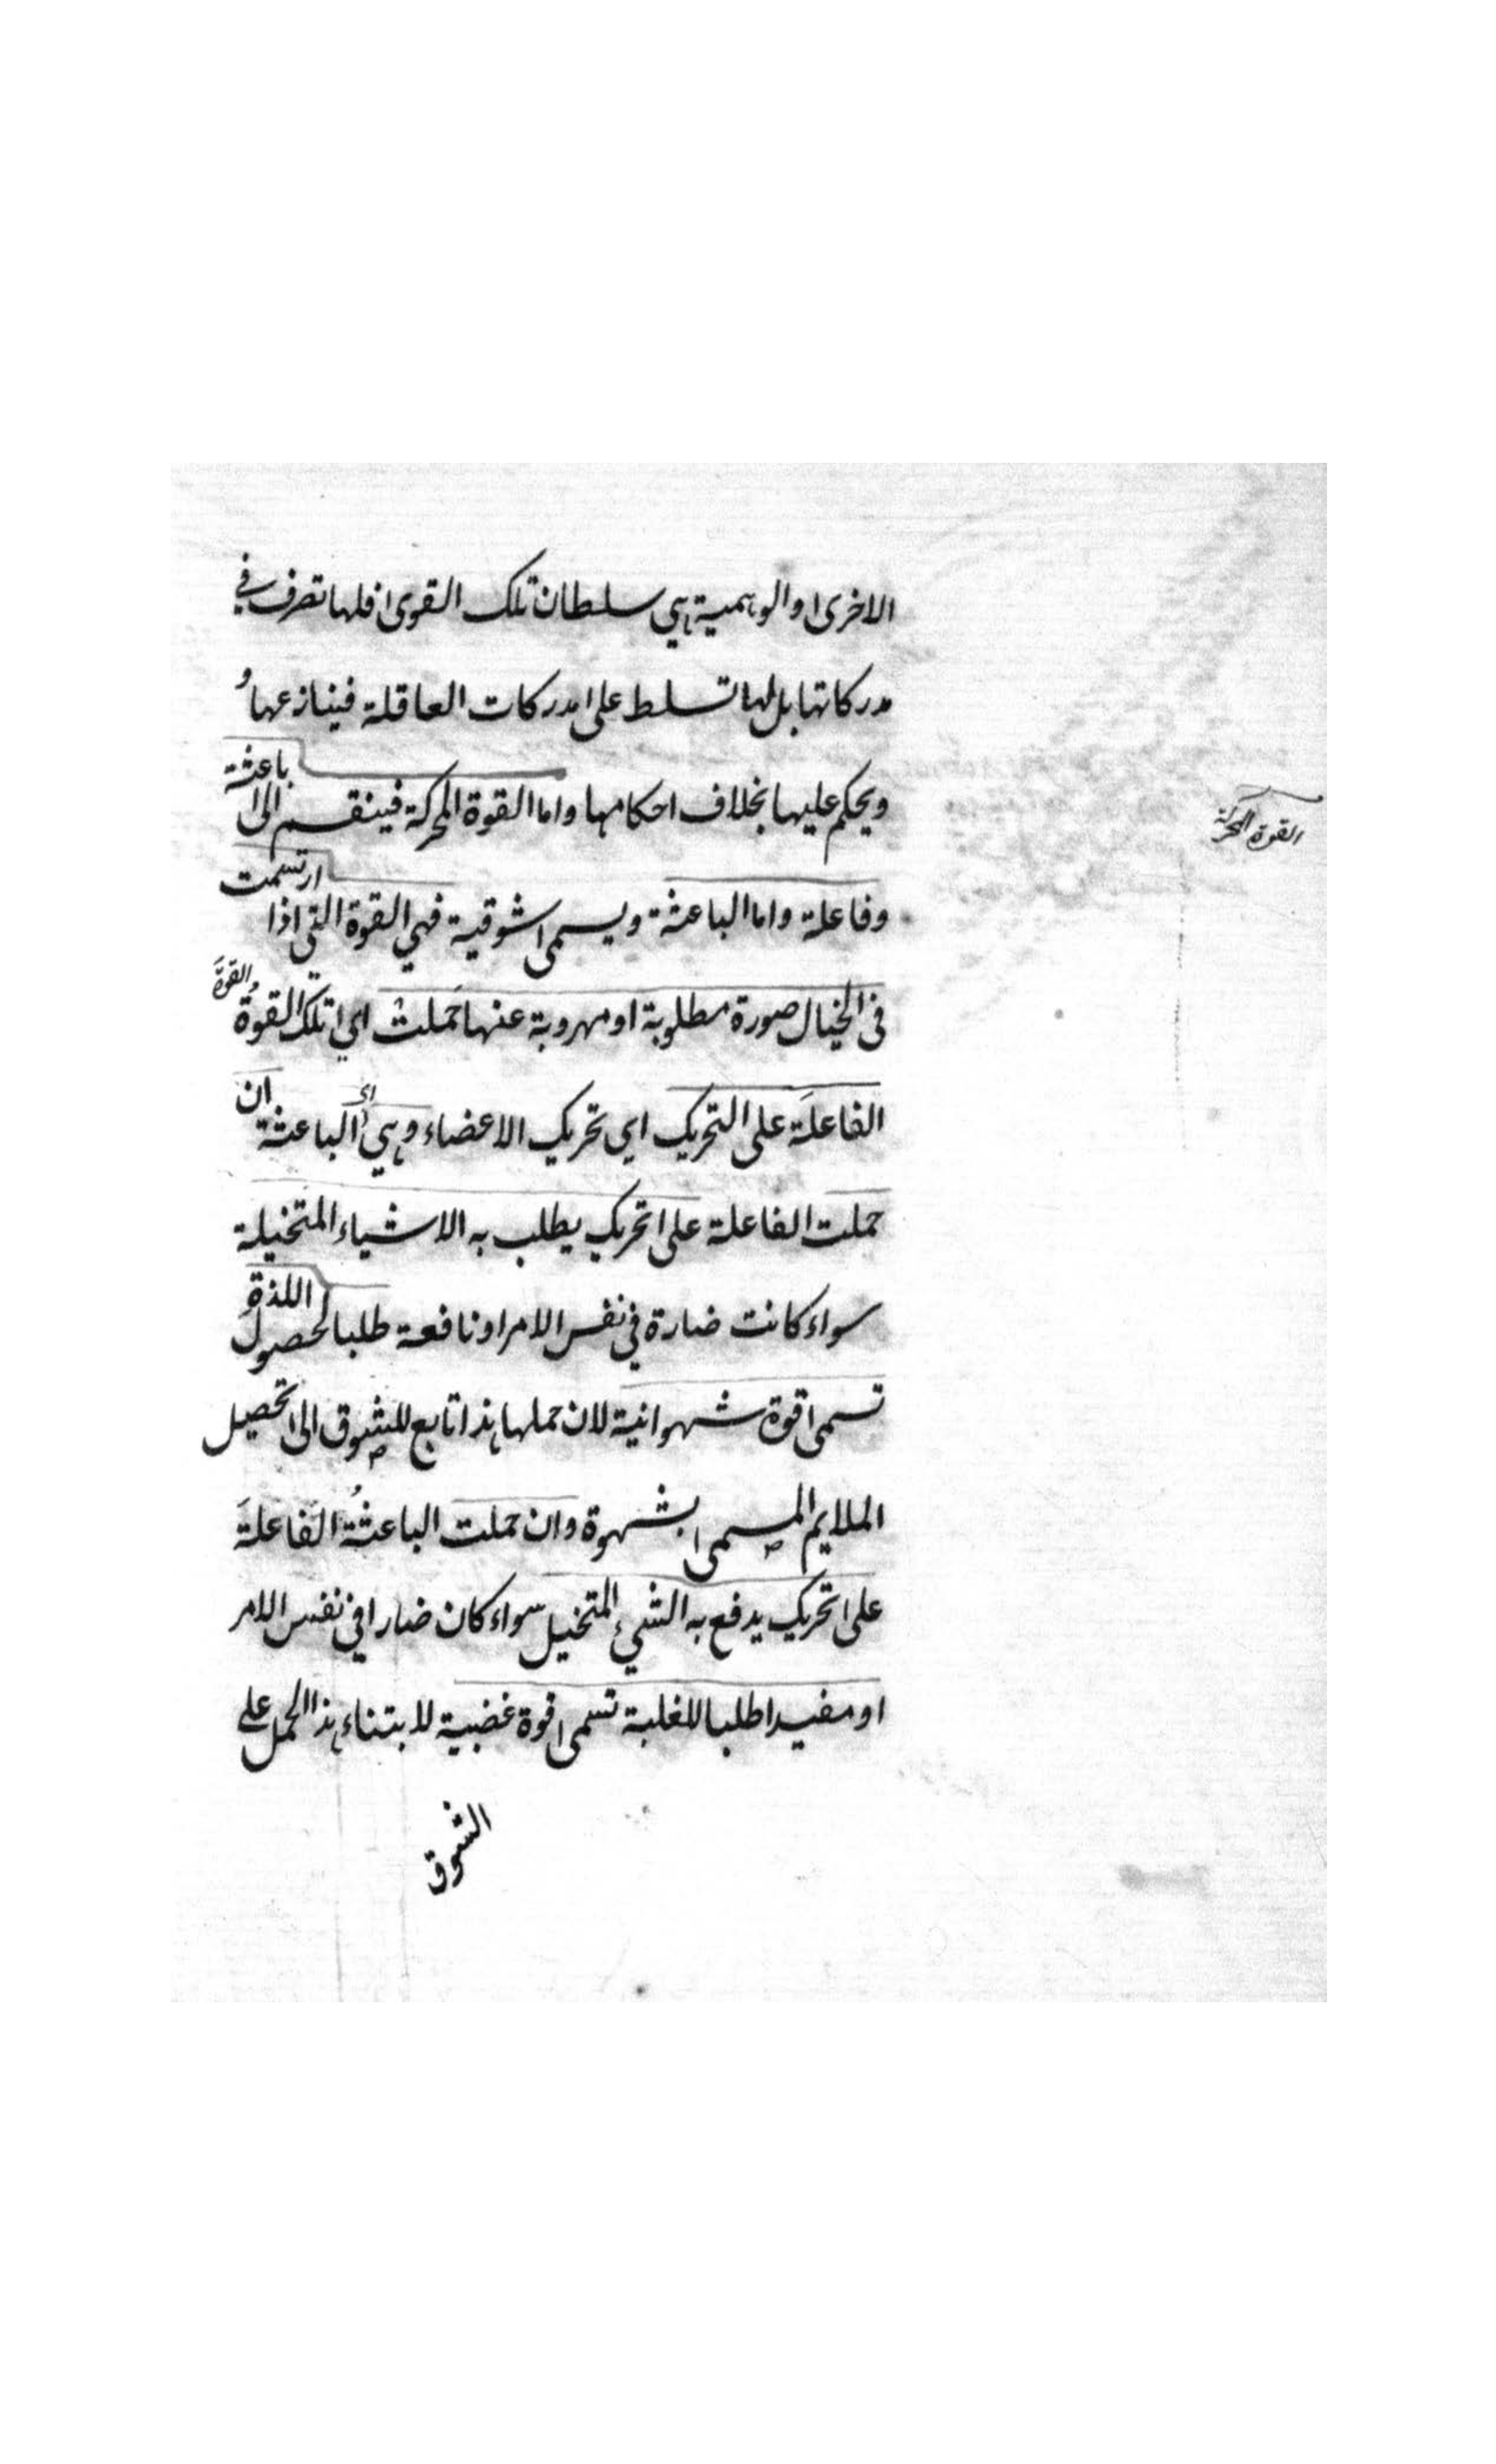 الاخرى والوهمية هي سلطان تلك القوى فلها تصرف في
مدركاتها بل لها تسلط على مدركات العاقلة فينازعها و
ويحكم عليها بخلاف احكامها واما القوة المحركة فينقسم الى باعثة
القوة المحركة
وفاعلة واما الباعثة ويسمى شوقية فهي القوة التي اذا ارتسمت
في الخيال صورة مطلوبة او مهروبة عنها حملت اي تلك القوة القوة
الفاعلة على التحريك اي تحريك الاعضاء وهي اي الباعثة ان
حملت الفاعلة على تحريك يطلب به الاشياء المتخيلة
سواء كانت ضارة في نفس الامر او نافعة طلبا لحصول اللذة
تسمى قوة شهوانية لان حملها هذا تابع للشوق الى تحصيل
الملايم المسمى بشهوة وان حملت الباعثة الفاعلة
على تحريك يدفع به الشيء المتخيل سواء كان ضارا في نفس الامر
او مفيدا طلبا للغلبة تسمى قوة غضبية لابتناء هذا الحمل على
الشوق